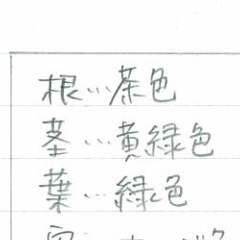 根…茶色
茎…黄緑色
葉…緑色